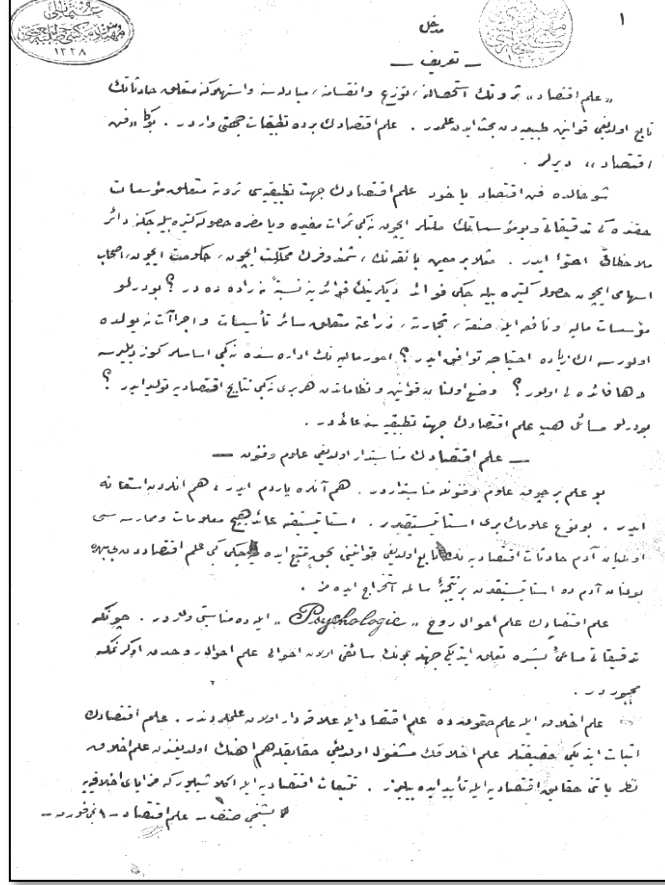 ١
مدخل
— تعريف —
«علم اقتصاد» ثروتك استحصالنه، توزيع وانقسامنه، مبادله سنه واستهلاكنه متعلق حادثاتك
تابع اولديغى قوانين طبيعيه دن بحث ايدن علمدر . علم اقتصادك برده تطبيقات جهتى واردر . بوكا «فن
اقتصاد» ديرلر .
شو حالده فن اقتصاد ياخود علم اقتصادك جهت تطبيقيه سى ثروته متعلق مؤسسات
حقنده كى تدقيقاتى وبو مؤسساتك ملتلر ايچون نه كى ثمرات مفيده ويا مضره حصوله كتيره بيله جكنه دائر
ملاحظاتى احتوا ايدر . مثلا بر معين بانقه نك ، شمندوفرك مملكت ايچون ، حكومت ايچون ، اصحاب
اسهامى ايچون حصوله كتيره بيله جكى فوائد ديكرينك فوائدينه نسبة نه راده ده در ؟ بودرلو
مؤسسات ماليه ونافعه ايله صنعته ، تجارته ، زراعته متعلق سائر تأسيسات واجراآت نه يولده
اولورسه اك زياده احتياجه توافق ايدر ؟ امور ماليه نك اداره سنده نه كى اساسلر كوزه ديليرسه
دها فائده لى اولور ؟ وضع اولنان قوانين ونظاماتدن هر برى نه كى نتايج اقتصاديه توليد ايدر ؟
بودرلو مسائل هپ علم اقتصادك جهت تطبيقيه سنه عائددر .
— علم اقتصادك مناسبتدار اولديغى علوم وفنون —
بو علم بر چوق علوم وفنونله مناسبتداردر . هم آنلره ياردم ايدر ، هم آنلردن استعانه
ايدر . بو نوع علومك برى استاتيستيقدر . استاتيستيقه عائد هيچ معلومات وممارسه سى
اولميان آدم حادثات اقتصاديه نك تابع اولديغى قوانينى بحق تتبع ايده ميه جكى كبى علم اقتصاددن بى بهره
بولنان آدم ده استاتيستيقدن بر نتيجۀ سالمه استخراج ايده مز .
علم اقتصادك علم احوال روح « Psychologie » ايله ده مناسبتى واردر . چونكه
تدقيقاتى مساعئ بشره تعلق ايتديكى جهتله بونك سائقى اولان احوالى علم احوال روحدن اوكرنمكه
مجبوردر .
علم اخلاق ايله علم حقوقده علم اقتصاد ايله علاقه دار اولان علملردندر . علم اقتصادك
اثبات ايتديكى حقيقتلر علم اخلاقك مشغول اولديغى حقايقله هم آهنك اولديغندن علم اخلاق
نظرياتنى حقايق اقتصاديه ايله تأييد ايده بيلير . تتبعات اقتصاديه ايله اكلاشيلور كه مزاياى اخلاقيه
بشنجى صنف — علم اقتصاد — ١ نجى فورمه —
١٣٢٨